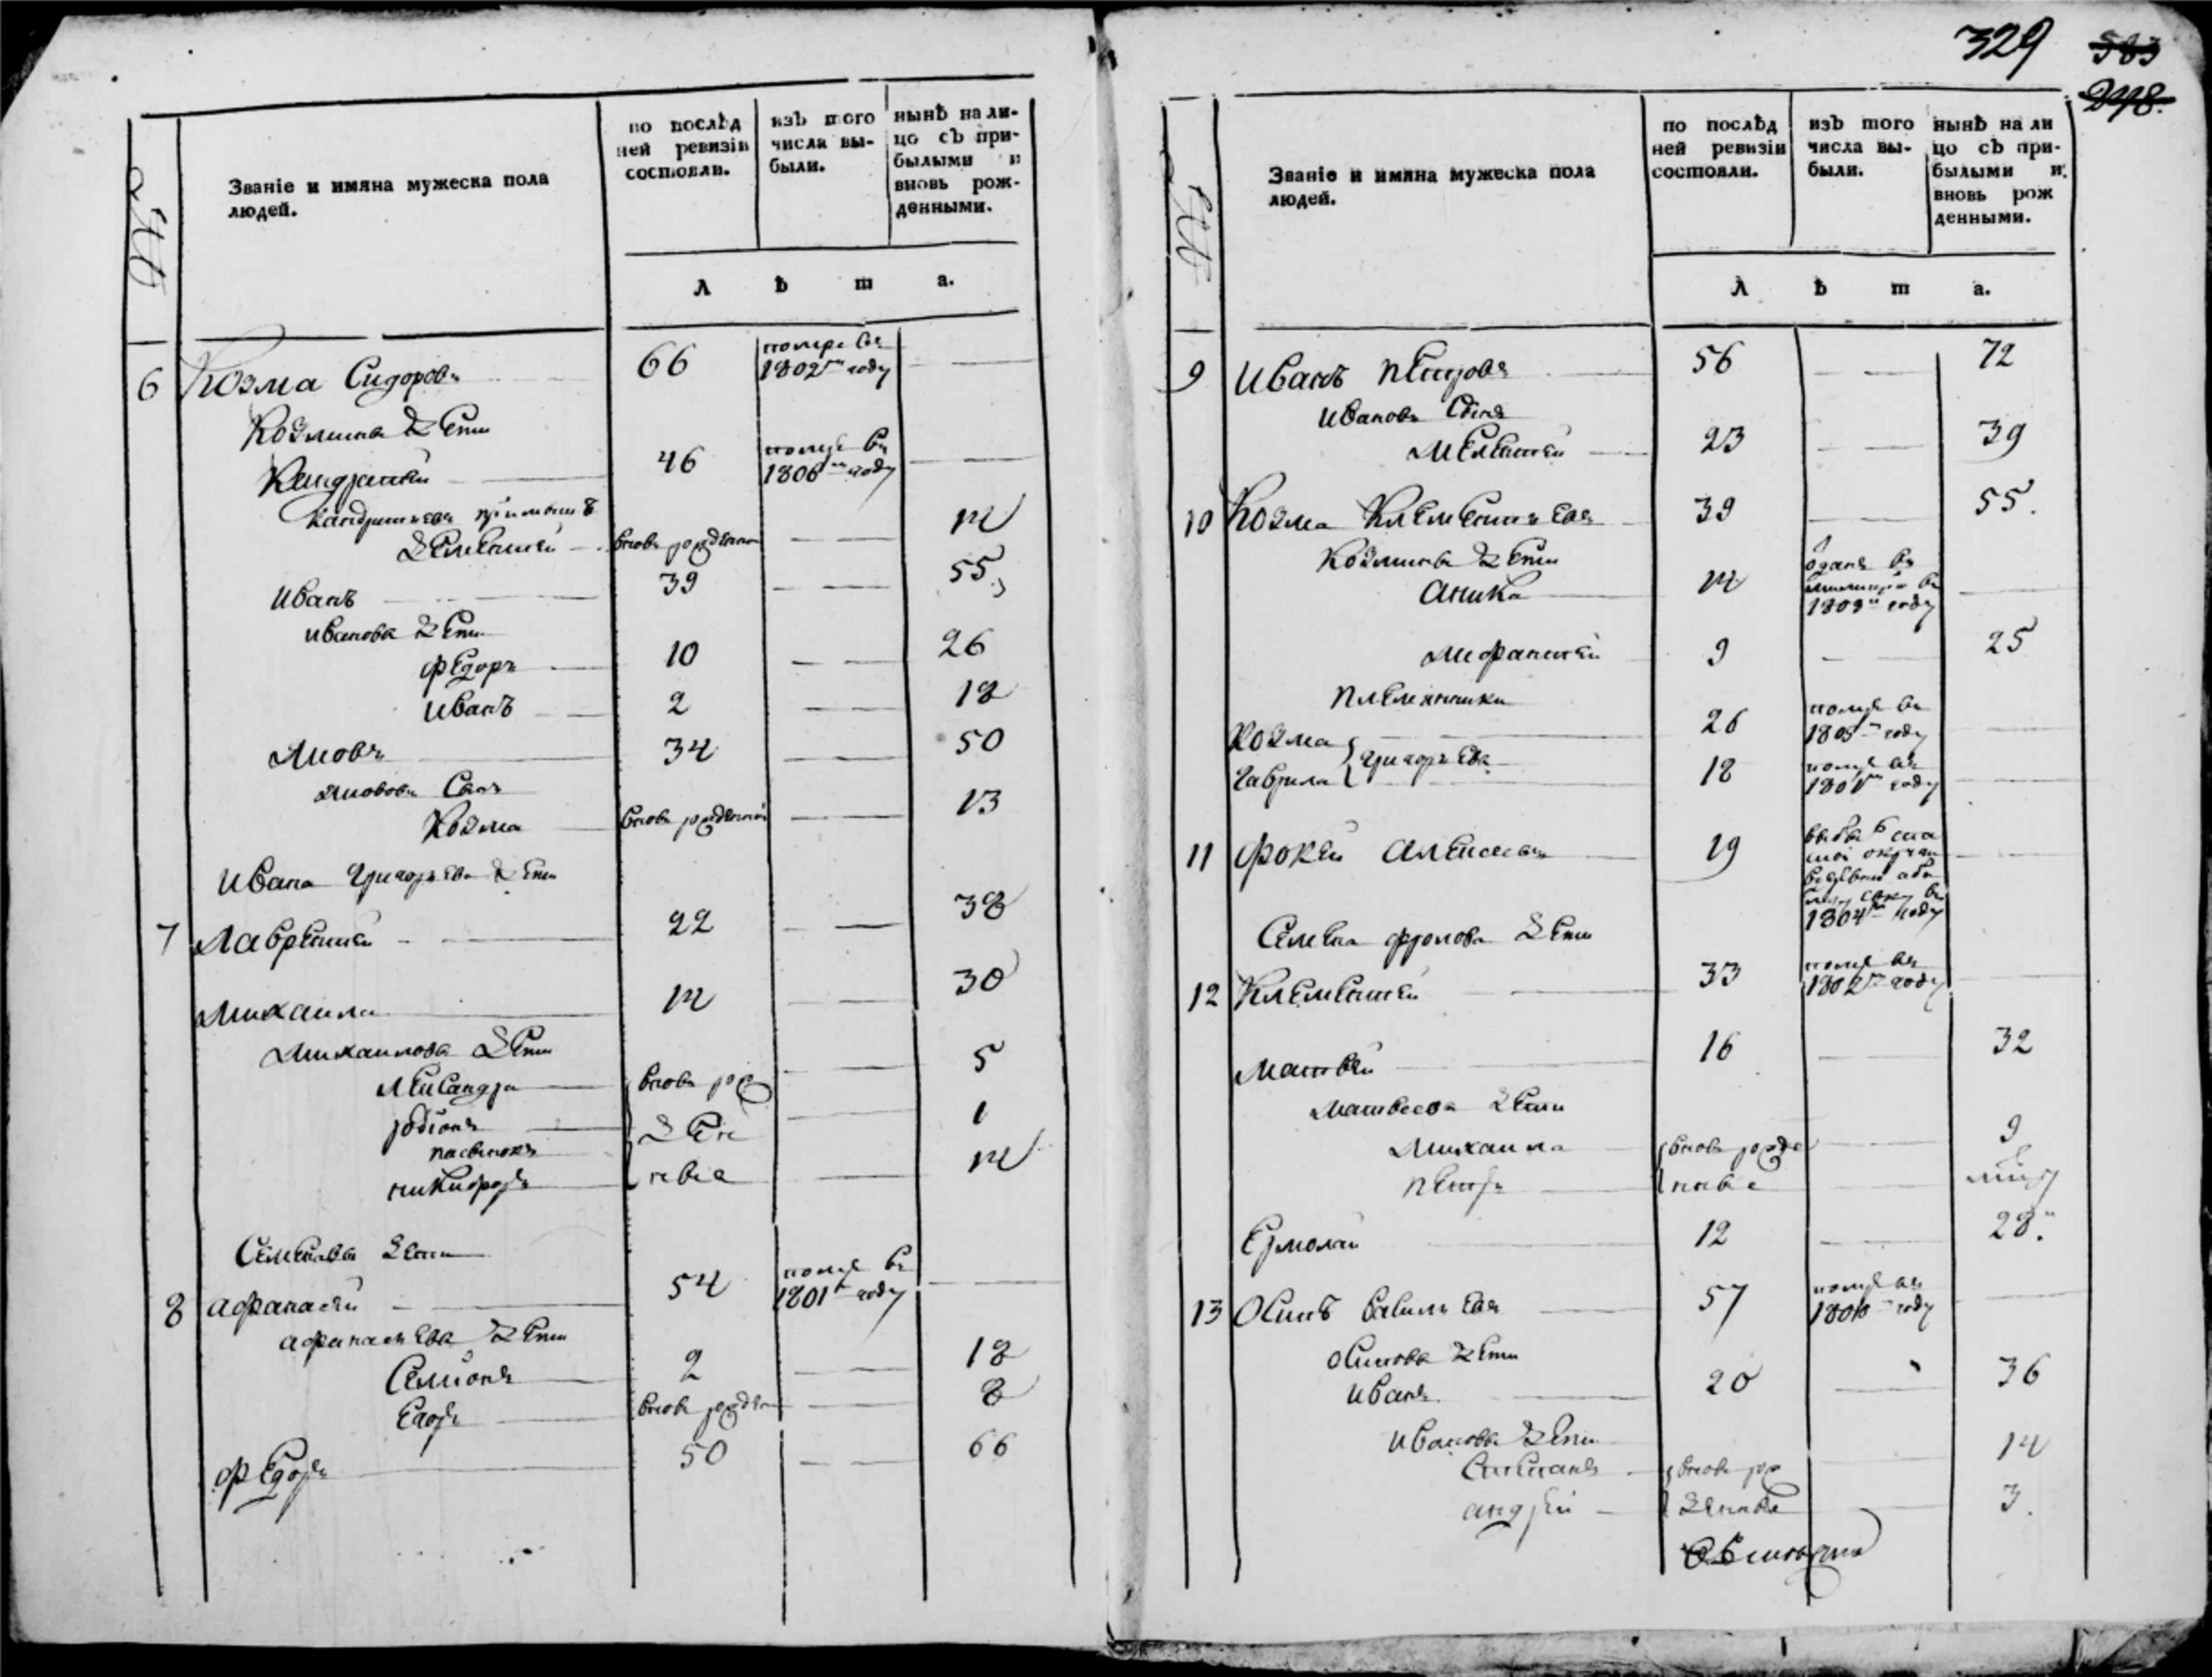 329
583
298.
Званіе и имяна мужеска пола
людей.
по послѣд
ней ревизіи
состояли.
изъ того
числа вы-
были.
нынѣ на ли-
цо съ при-
былыми и
вновь рож-
денными.
Л ѣ т а.
6 Козма Сидоровъ 66 помре въ
1802м году
Козмины дети
Кандратей 46 помре въ
1806м году
Кандратьева
Дементей вновь рожденой 14
Иванъ 39 55
Ивановы дети
Федоръ 10 26
Иванъ 2 18
Иовъ 34 50
Сынъ
Козма вновь рожденной 13
Ивана Григорьева дети
7 Лаврентей 22 38
Михаила 14 30
Михаилова дети
Лександра вновь рож 5
Родіонъ ден 1
пасынокъ
Никифоръ ныя 14
Семеновы дети
8 Афанасей 54 помре въ
1801м году
Афанасьева дети
Семионъ 2 18
Егоръ вновь рожден 8
Федоръ 50 66
Званіе и имяна мужеска пола
людей.
по послѣд
ней ревизіи
состояли.
изъ того
числа вы-
были.
нынѣ на ли
цо съ при-
былыми и
вновь рож
денными.
Л ѣ т а.
9 Иванъ Петровъ 56 72
Ивановъ Сынъ
Мелентей 23 39
10 Козма Клементьевъ 39 55.
Козмины дети
Аника 14 отданъ въ
въ
году
9 25
племянники
Козма 26 помре въ
1805м году
Григорьевы
Гаврила 18 помре въ
1801м году
11 Фокей Алексеевъ 19
1804м году
Семена Фролова дети
12 Клементей 33 помре въ
1802м году
Матвей 16 32
Матвеева дети
Михаила вновь рожде 9
Петръ нные
Ермолай 12 28.
13 Осипъ Савельевъ 57 помре въ
году
Осипова дети
Иванъ 20 36
Ивановы дети
Степанъ вновь рож 14
Андрей денные 3.